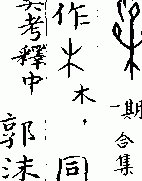 一期合集
作木木，同
考釋中郭沫